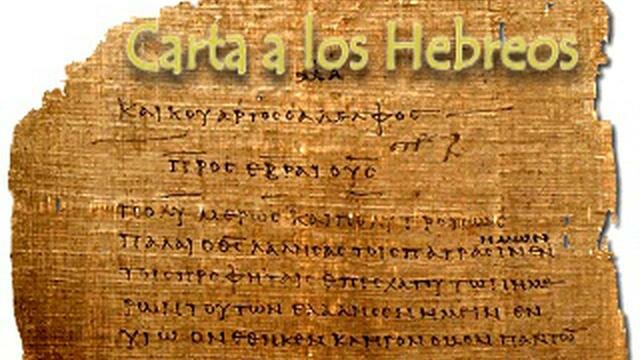 Carta a los Hebreos
ΚΑΙ ΚΟΥΑΡΤΟϹ Ο ΑΔΕΛΦΟϹ
ΠΡΟϹ ΕΒΡΑΙΟΥϹ
ΠΟΛΥΜΕΡΩϹ ΚΑΙ ΠΟΛΥΤΡΟΠΩϹ
ΗΜΩΝ
ΠΑΛΑΙ Ο ΘϹ ΛΑΛΗϹΑϹ ΤΟΙϹ ΠΑΤΡΑϹΙΝ ΕΝ
ΤΟΙϹ ΠΡΟΦΗΤΑΙϹ ΕΠ ΕϹΧΑΤΟΥ ΤΩΝ ΗΜΕ
ΡΩΝ ΤΟΥΤΩΝ ΕΛΑΛΗϹΕΝ ΗΜΕΙΝ ΕΝ
ΥΙΩ ΟΝ ΕΘΗΚΕΝ ΚΛΗΡΟΝΟΜΟΝ ΠΑΝΤΩ̅